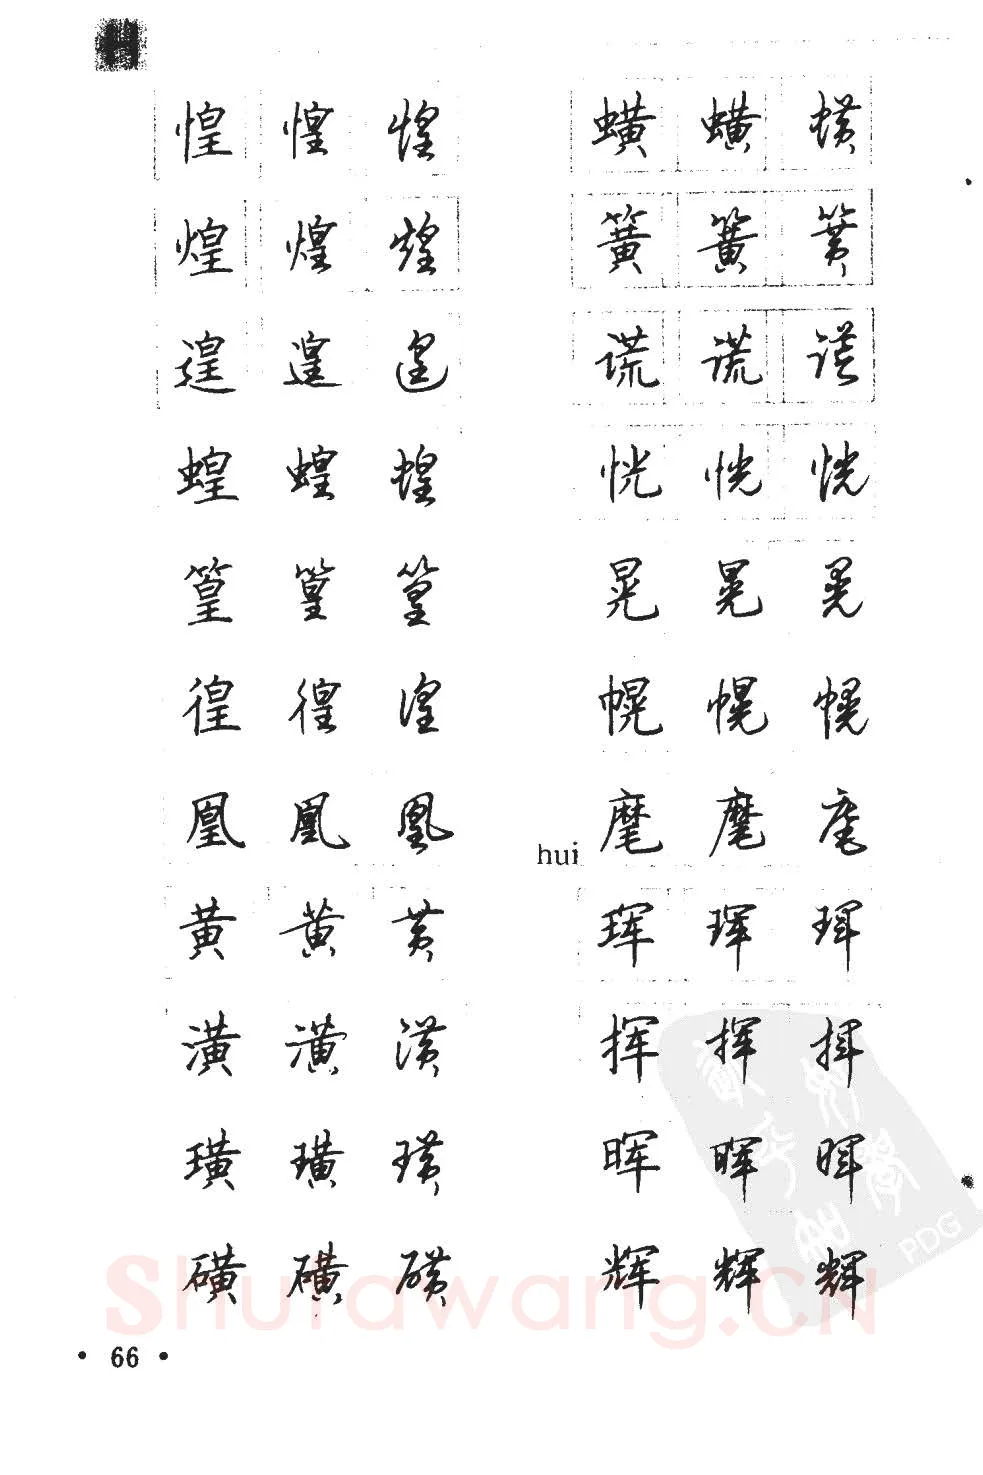 H
惶 惶 惶
煌 煌 煌
遑 遑 遑
蝗 蝗 蝗
篁 篁 篁
徨 徨 徨
凰 凰 凰
黄 黄 黄
潢 潢 潢
璜 璜 璜
磺 磺 磺
蟥 蟥 蟥
簧 簧 簧
谎 谎 谎
恍 恍 恍
晃 晃 晃
幌 幌 幌
hui 麾 麾 麾
珲 珲 珲
挥 挥 挥
晖 晖 晖
辉 辉 辉
PDG
Shufawang.CN
• 66 •